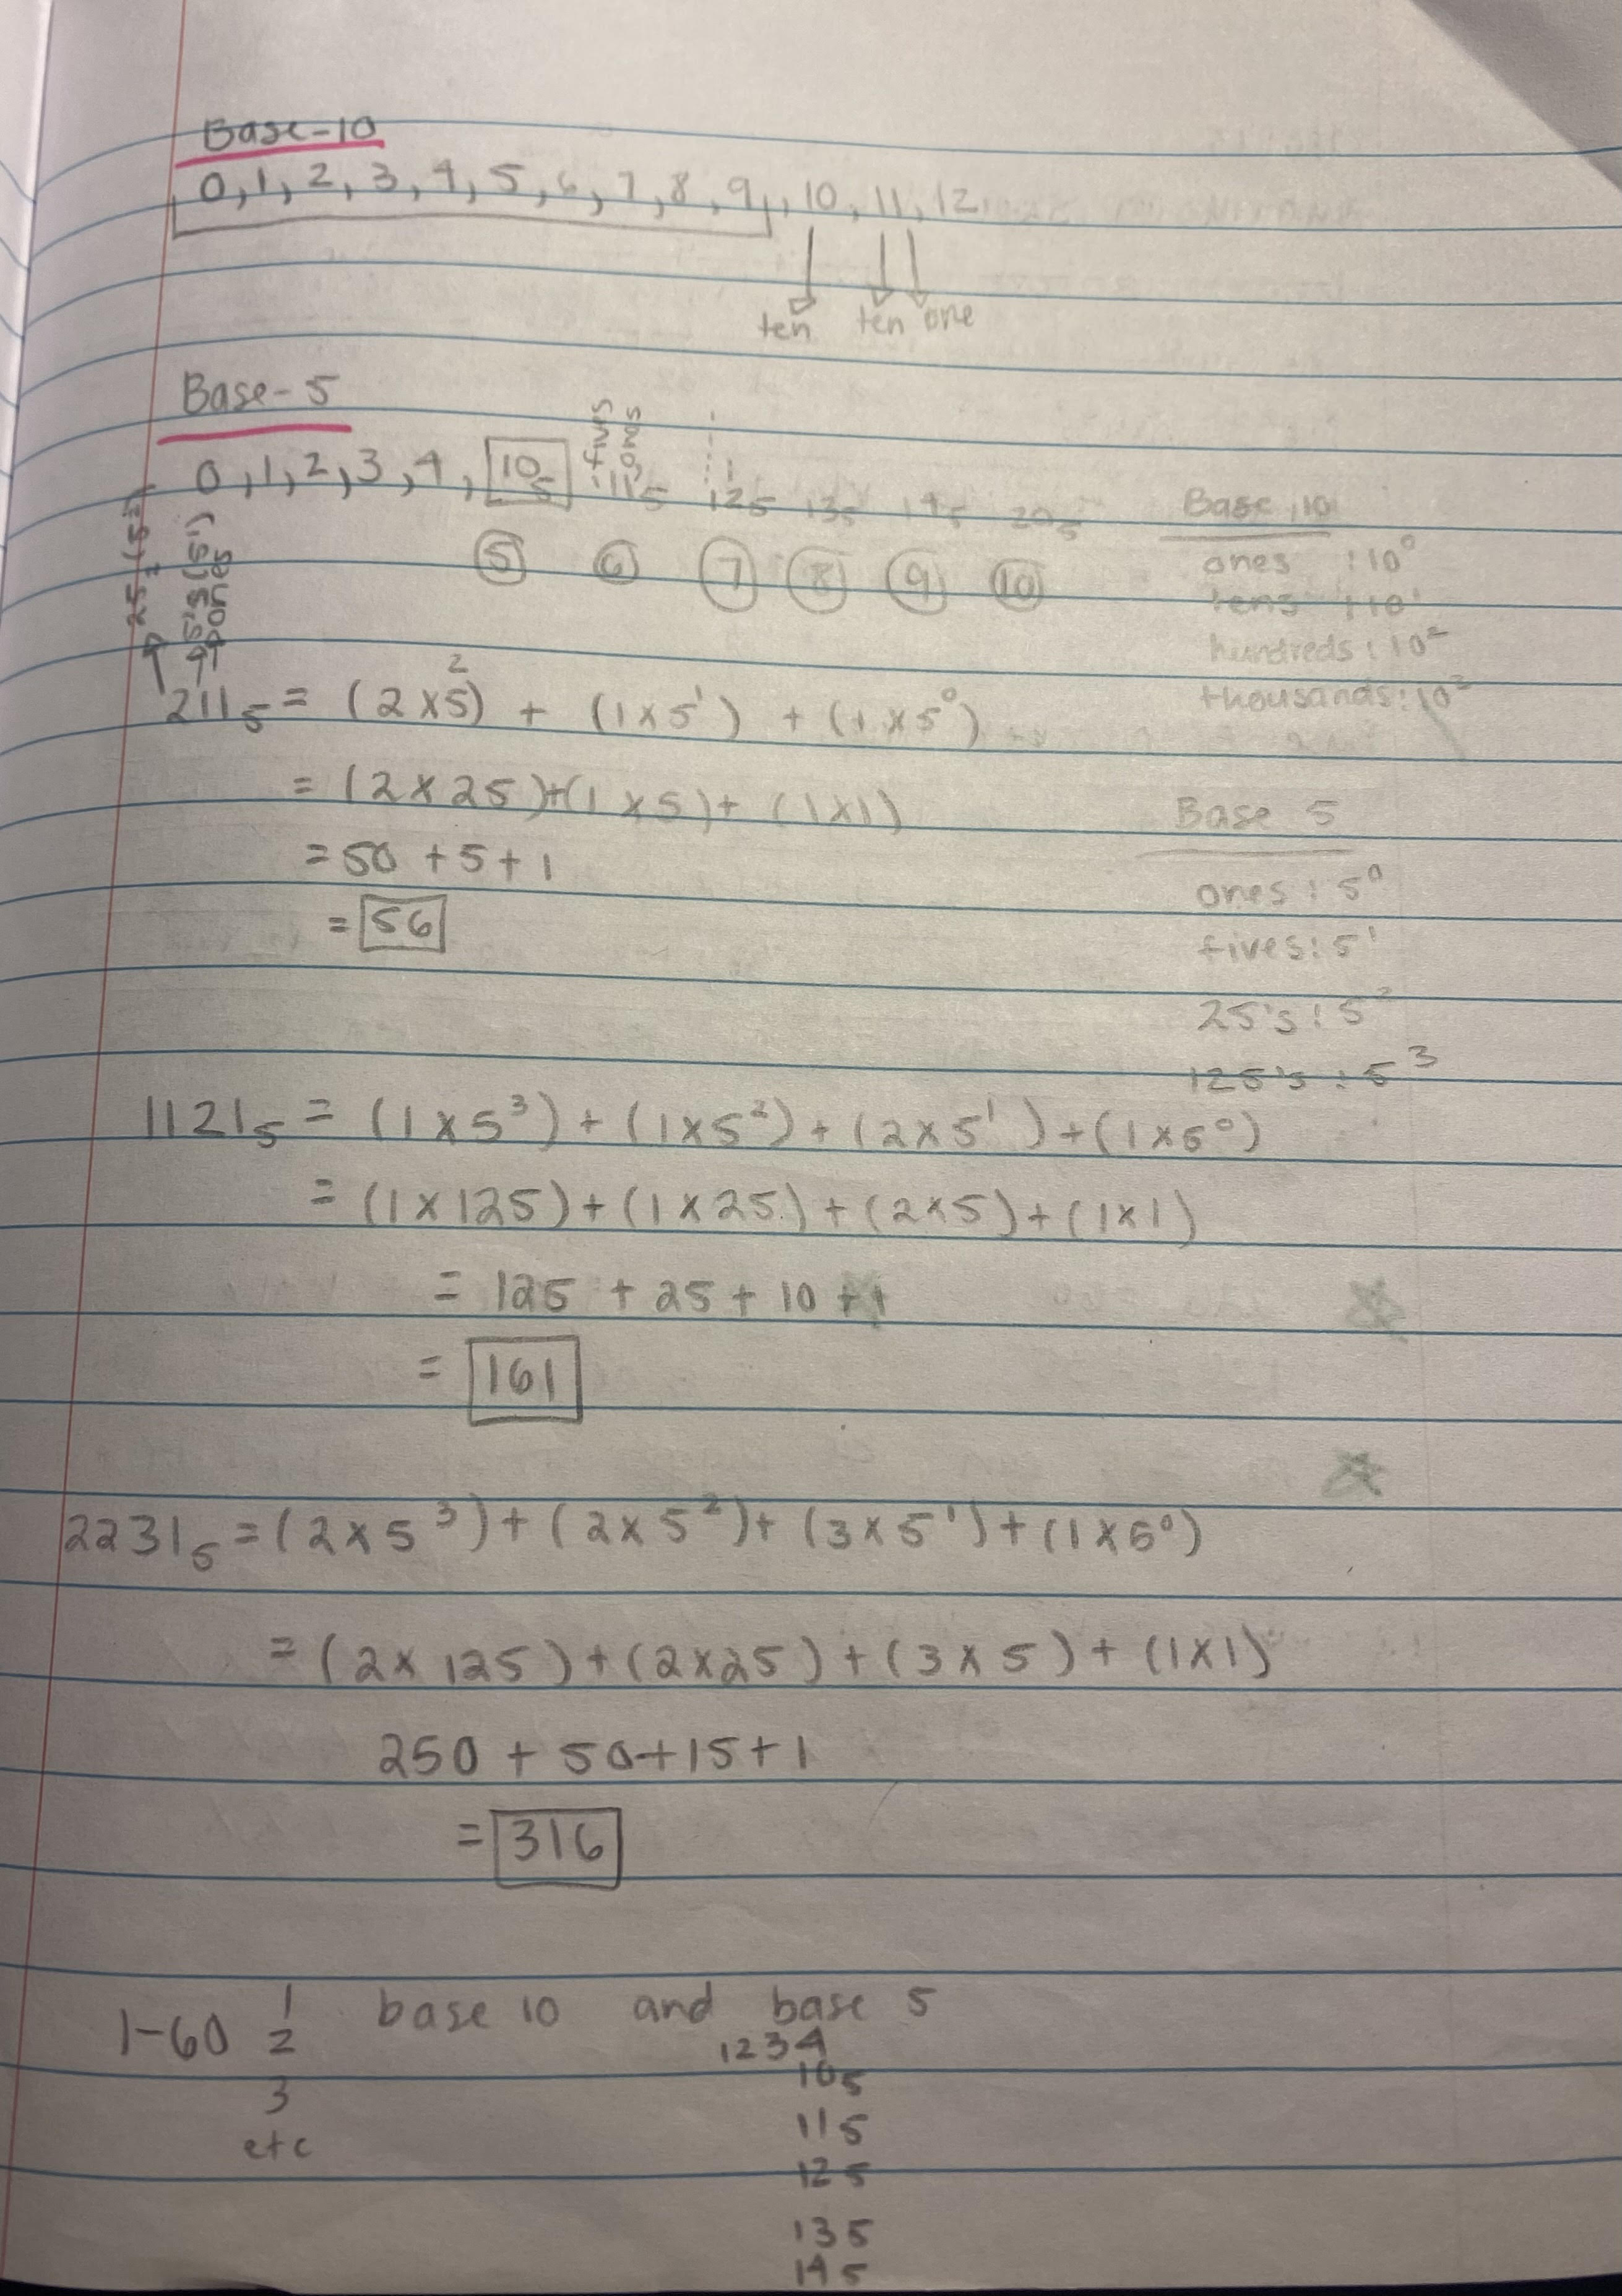 Base-10
0, 1, 2, 3, 4, 5, 6, 7, 8, 9, 10, 11, 12
ten ten one
Base-5
0, 1, 2, 3, 4, 10₅ 11₅ 12₅ 13₅ 14₅ 20₅
fives
ones
5 6 7 8 9 10
Base 10
ones : 10⁰
tens : 10¹
hundreds : 10²
thousands : 10³
5's (5¹)
ones
211₅ = (2 x 5²) + (1 x 5¹) + (1 x 5⁰)
= (2 x 25) + (1 x 5) + (1 x 1)
= 50 + 5 + 1
= 56
Base 5
ones : 5⁰
fives : 5¹
25's : 5²
125's : 5³
1121₅ = (1 x 5³) + (1 x 5²) + (2 x 5¹) + (1 x 5⁰)
= (1 x 125) + (1 x 25) + (2 x 5) + (1 x 1)
= 125 + 25 + 10 + 1
= 161
2231₅ = (2 x 5³) + (2 x 5²) + (3 x 5¹) + (1 x 5⁰)
= (2 x 125) + (2 x 25) + (3 x 5) + (1 x 1)
250 + 50 + 15 + 1
= 316
1-60 1 base 10 and base 5
2 1 2 3 4
3 10₅
etc 11₅
12₅
13₅
14₅